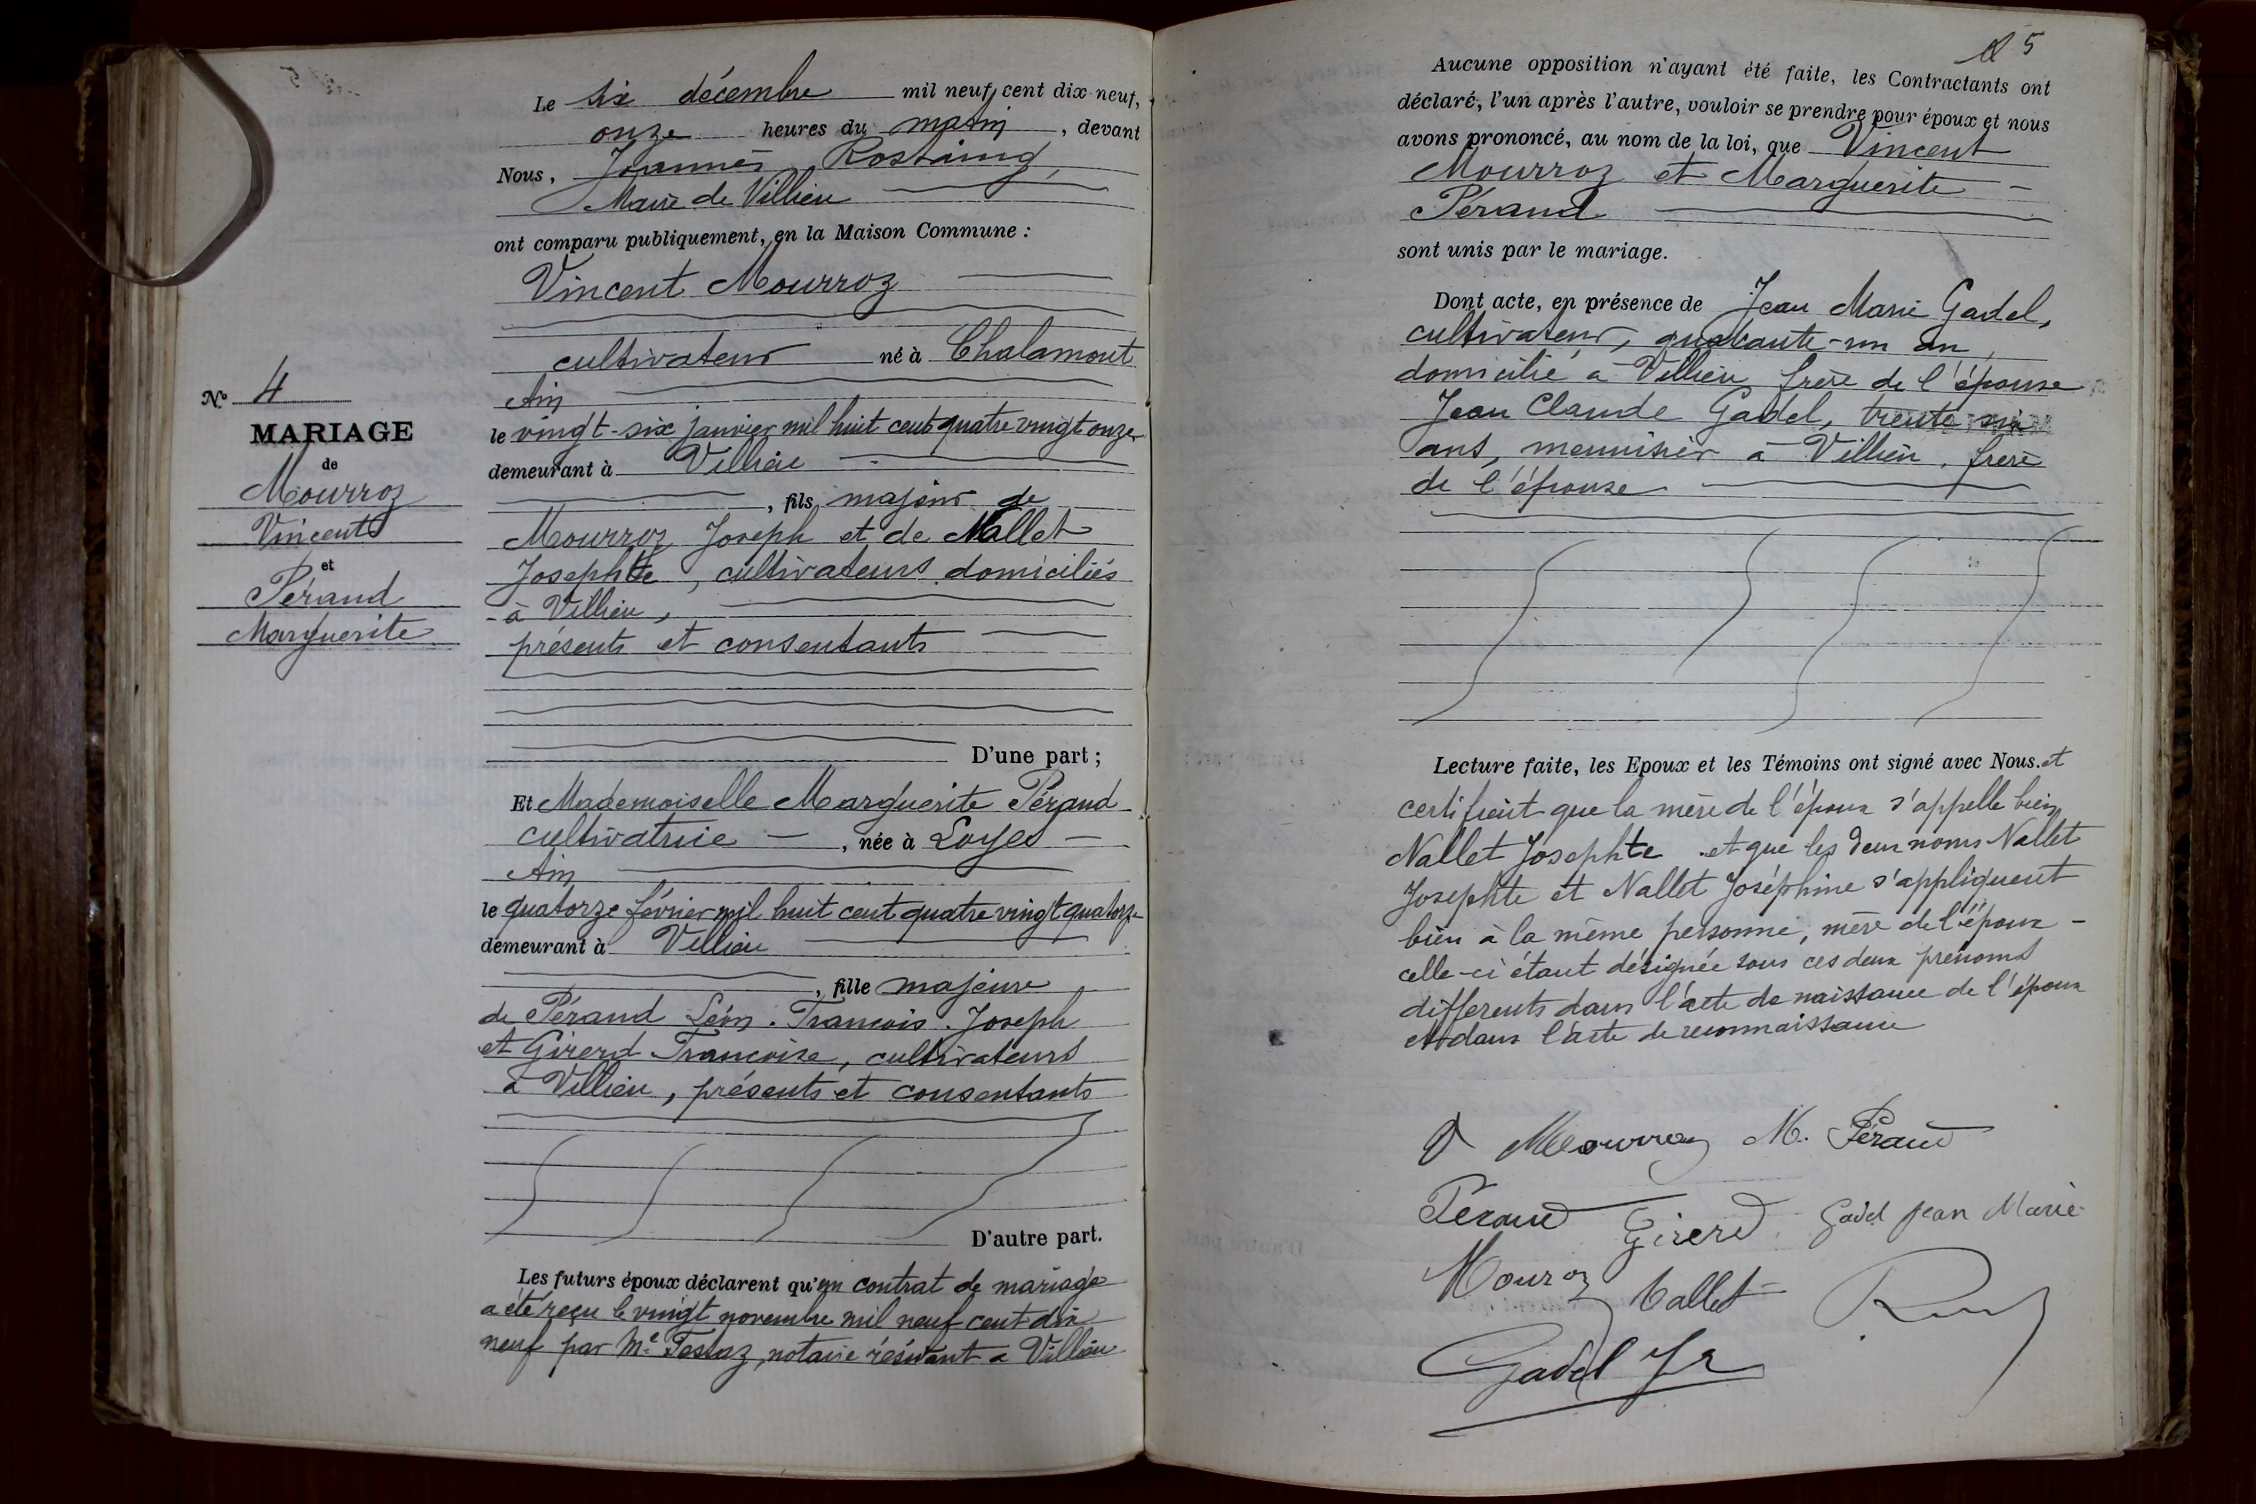 Le six décembre mil neuf cent dix-neuf,
onze heures du matin, devant
Nous, Joannès Rostaing,
Maire de Villieu
ont comparu publiquement, en la Maison Commune :
Vincent Mourroz
cultivateur né à Chalamont
Ain
le vingt-six janvier mil huit cent quatre vingt onze
demeurant à Villieu
, fils majeur de
Mourroz Joseph et de Nallet
Josephte, cultivateurs domiciliés
à Villieu,
présents et consentants
D'une part ;
Et Mademoiselle Marguerite Pérand
cultivatrice, née à Loyes
Ain
le quatorze février mil huit cent quatre vingt quatorze
demeurant à Villieu
, fille majeure
de Pérand Léon. François. Joseph
et Girerd Françoise, cultivateurs
à Villieu, présents et consentants
D'autre part.
Les futurs époux déclarent qu'un contrat de mariage
a été reçu le vingt novembre mil neuf cent dix
neuf par Me notaire résidant à Villieu
N° 4
MARIAGE
de
Mourroz
Vincent
et
Pérand
Marguerite
5
Aucune opposition n'ayant été faite, les Contractants ont
déclaré, l'un après l'autre, vouloir se prendre pour époux et nous
avons prononcé, au nom de la loi, que Vincent
Mourroz et Marguerite
Pérand
sont unis par le mariage.
Dont acte, en présence de Jean Marie Gadel,
cultivateur, quarante-un an,
domicilié à Villieu frère de l'épouse
Jean Claude Gadel, trente six
ans, menuisier à Villieu, frère
de l'épouse
Lecture faite, les Epoux et les Témoins ont signé avec Nous. et
certifient que la mère de l'époux s'appelle bien
Nallet Josephte et que les deux noms Nallet
Josephte et Nallet Joséphine s'appliquent
bien à la même personne, mère de l'époux -
celle-ci étant désignée sous ces deux prénoms
différents dans l'acte de naissance de l'époux
et dans l'acte de reconnaissance
V Mourroz M. Pérand
Pérand Girerd Gadel Jean Marie
Mouroz Nallet
Gadel